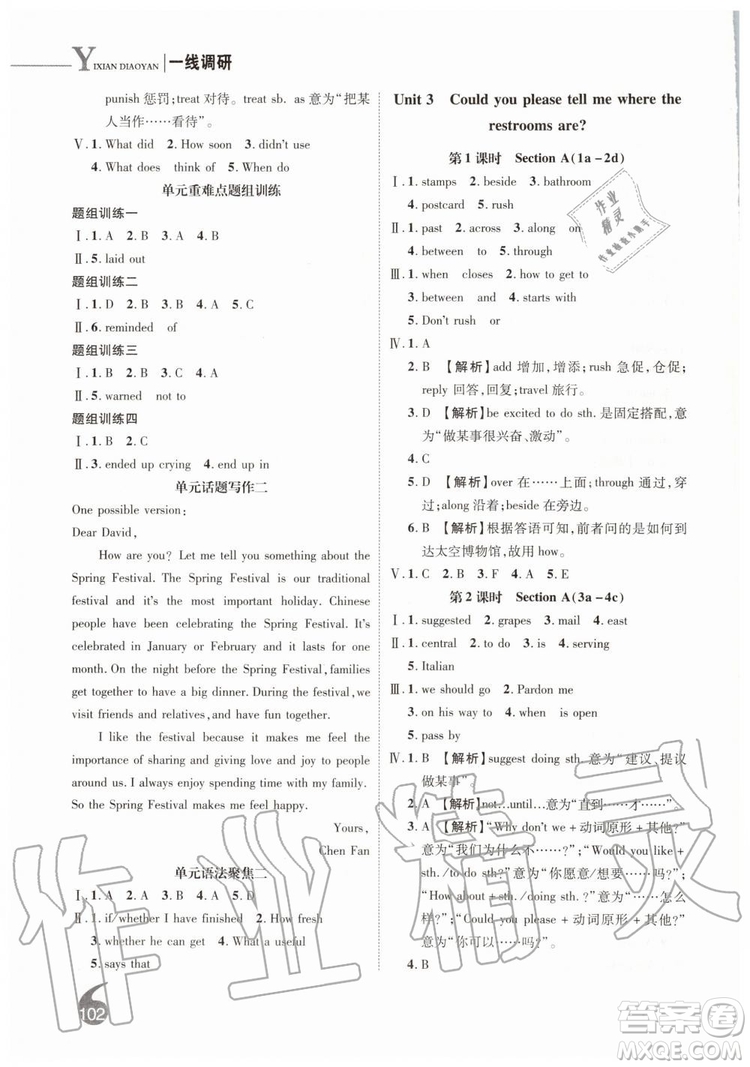 YIXIAN DIAOYAN 一线调研
punish 惩罚;treat 对待。treat sb. as 意为“把某
人当作……看待”。
Ⅴ. 1. What did 2. How soon 3. didn't use
4. What does think of 5. When do
单元重难点题组训练
题组训练一
Ⅰ. 1. A 2. B 3. B 4. A
Ⅱ. 5. laid out
题组训练二
Ⅰ. 1. D 2. B 3. A 4. A 5. C
Ⅱ. 6. reminded of
题组训练三
Ⅰ. 1. A 2. A 3. B 4. C
Ⅱ. 5. warned not to
题组训练四
Ⅰ. 1. D 2. C
Ⅱ. 3. ended up crying 4. ended up in
单元话题写作二
One possible version:
Dear David,
How are you? Let me tell you something about the
Spring Festival. The Spring Festival is our traditional
festival and it's the most important holiday. Chinese
people have been celebrating the Spring Festival. It's
celebrated in January or February and it lasts for one
month. On the night before the Spring Festival, families
get together and have a big dinner. During the festival, we
visit friends and relatives, and have fun together.
I like the festival because it makes me feel the
importance of sharing and giving love and joy to people
around us. I also enjoy spending time with my family.
So the Spring Festival makes me feel happy.
Yours,
Chen Fan
单元语法聚焦二
Ⅰ. 1. A 2. A 3. B 4. A 5. D
Ⅱ. 1. if/whether I have finished 2. How fresh
3. whether he can get 4. What a useful
5. says that
102
Unit 3 Could you please tell me where the
restrooms are?
第 1 课时 Section A(1a-2d)
Ⅰ. 1. stamps 2. beside 3. bathroom
4. postcard 5. rush
Ⅱ. 1. past 2. across 3. along on
4. between to 5. through
Ⅲ. 1. when closes 2. how to get to
3. between and 4. starts with
5. Don't rush or
Ⅳ. 1. A
2. B 【解析】add 增加,增添;rush 急促,仓促;
reply 回答,回复;travel 旅行。
3. D 【解析】be excited to do sth. 是固定搭配,意
为“做某事很兴奋、激动”。
4. C
5. B 【解析】over 在……上面;through 通过,穿
过;along 沿着;beside 在旁边。
6. B 【解析】根据答语可知,前者问的是如何到
达太空博物馆,故用 how。
Ⅴ. 1. C 2. B 3. D 4. A 5. E
第 2 课时 Section A(3a-4c)
Ⅰ. 1. suggested 2. grapes 3. mail 4. east
Ⅱ. 1. central 2. to do 3. is 4. serving
5. Italian
Ⅲ. 1. we should go 2. Pardon me
3. on his way to 4. when is open
5. pass by
Ⅳ. 1. B 【解析】suggest doing sth. 意为“建议、提议
做某事”。
2. A 【解析】not…until…意为“直到……才……”。
3. A 【解析】“Why don't we + 动词原形 + 其他?”
意为“我们为什么不……?”;“Would you like +
sth. /to do sth. ?”意为“你愿意……吗?”;
“How about + sth. /doing sth. ?”意为“……怎么
样?”;“Could you please + 动词原形 + 其他?”
意为“你可以……吗?”。
4. B
作业精灵
作业精灵
答案圈